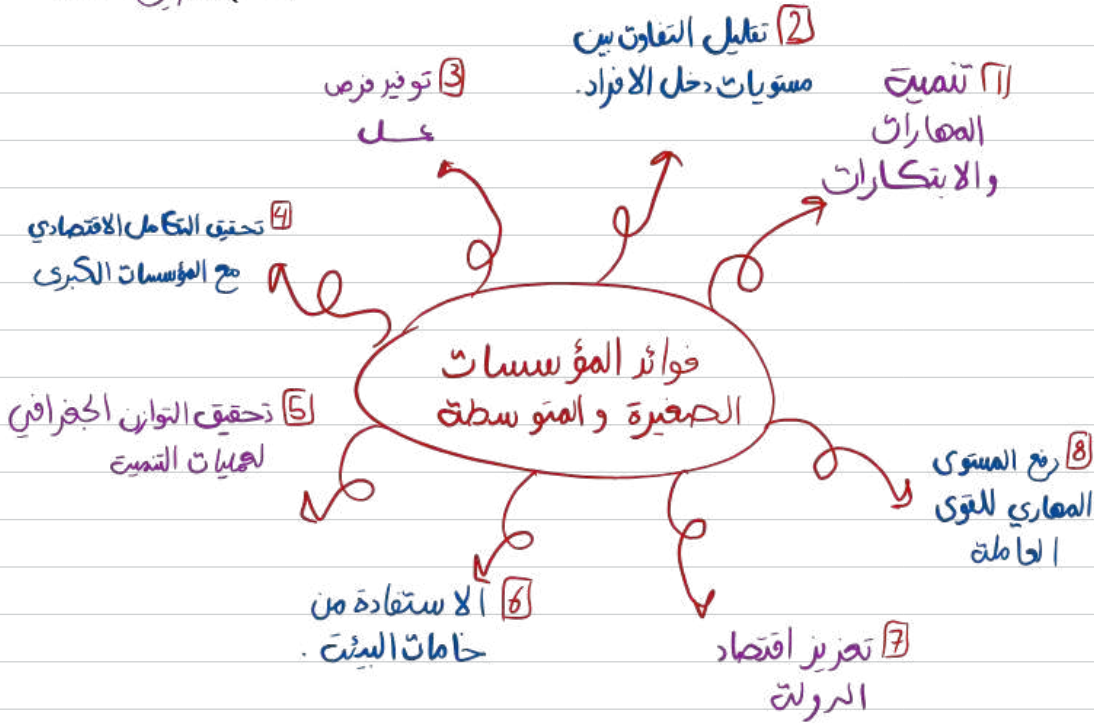 فوائد المؤسسات
الصغيرة والمتوسطة
1 تنمية
المهارات
والابتكارات
2 تقليل التفاوت بين
مستويات دخل الافراد.
3 توفير فرص
عمل
4 تحقيق التكامل الاقتصادي
مع المؤسسات الكبرى
5 تحقيق التوازن الجغرافي
لعمليات التنمية
6 الاستفادة من
خامات البيئة.
7 تعزيز اقتصاد
الدولة
8 رفع المستوى
المهاري للقوى
العاملة